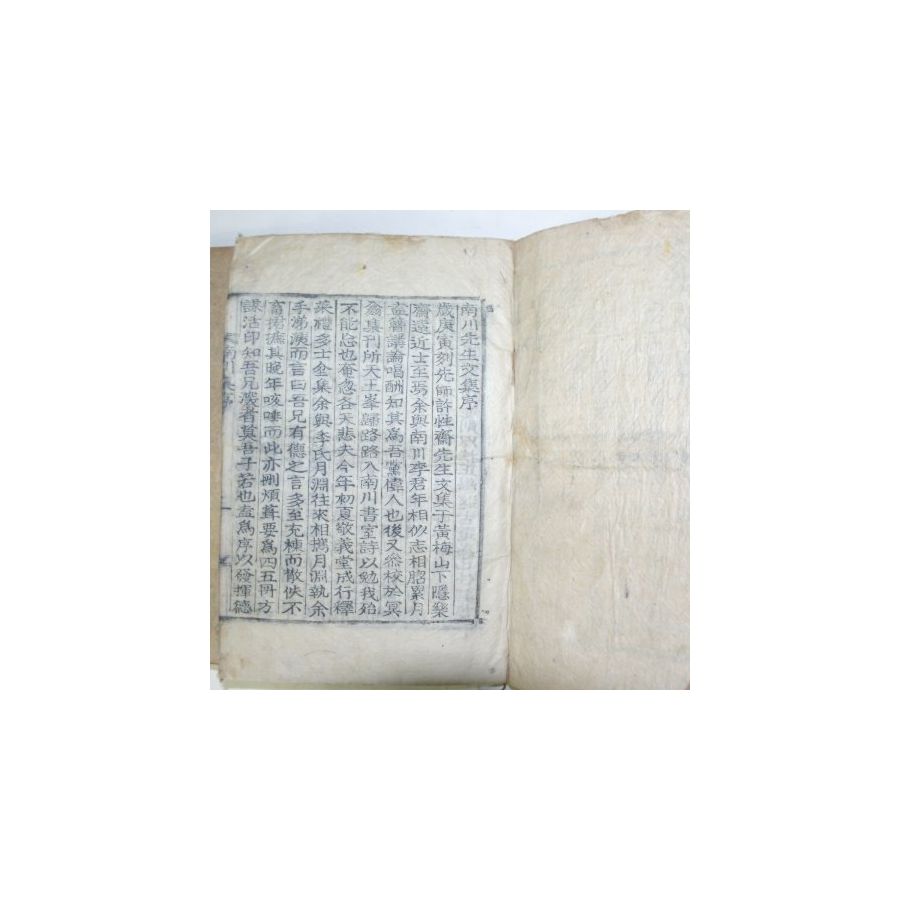 南川先生文集序
歲庚寅刻先師許性齋先生文集于黃梅山下隱樂
齋遠近士至焉余與南川李君年相似志相照累月
盃簪講論唱酬知其爲吾黨偉人也後又叅校於冥
翁集刊所天王峯歸路路入南川書室詩以勉我殆
不能忘也奄忽各天悲夫今年初夏敬義堂成行釋
菜禮多士金集余與李氏月淵往來相携月淵執余
手涕演而言曰吾兄有德之言多至充棟而散佚不
畜捃摭其晩年咳唾而此亦刪煩葺要爲四五冊方
謀活印知吾兄者莫吾子若也盍爲序以發揮德
南川集序
一